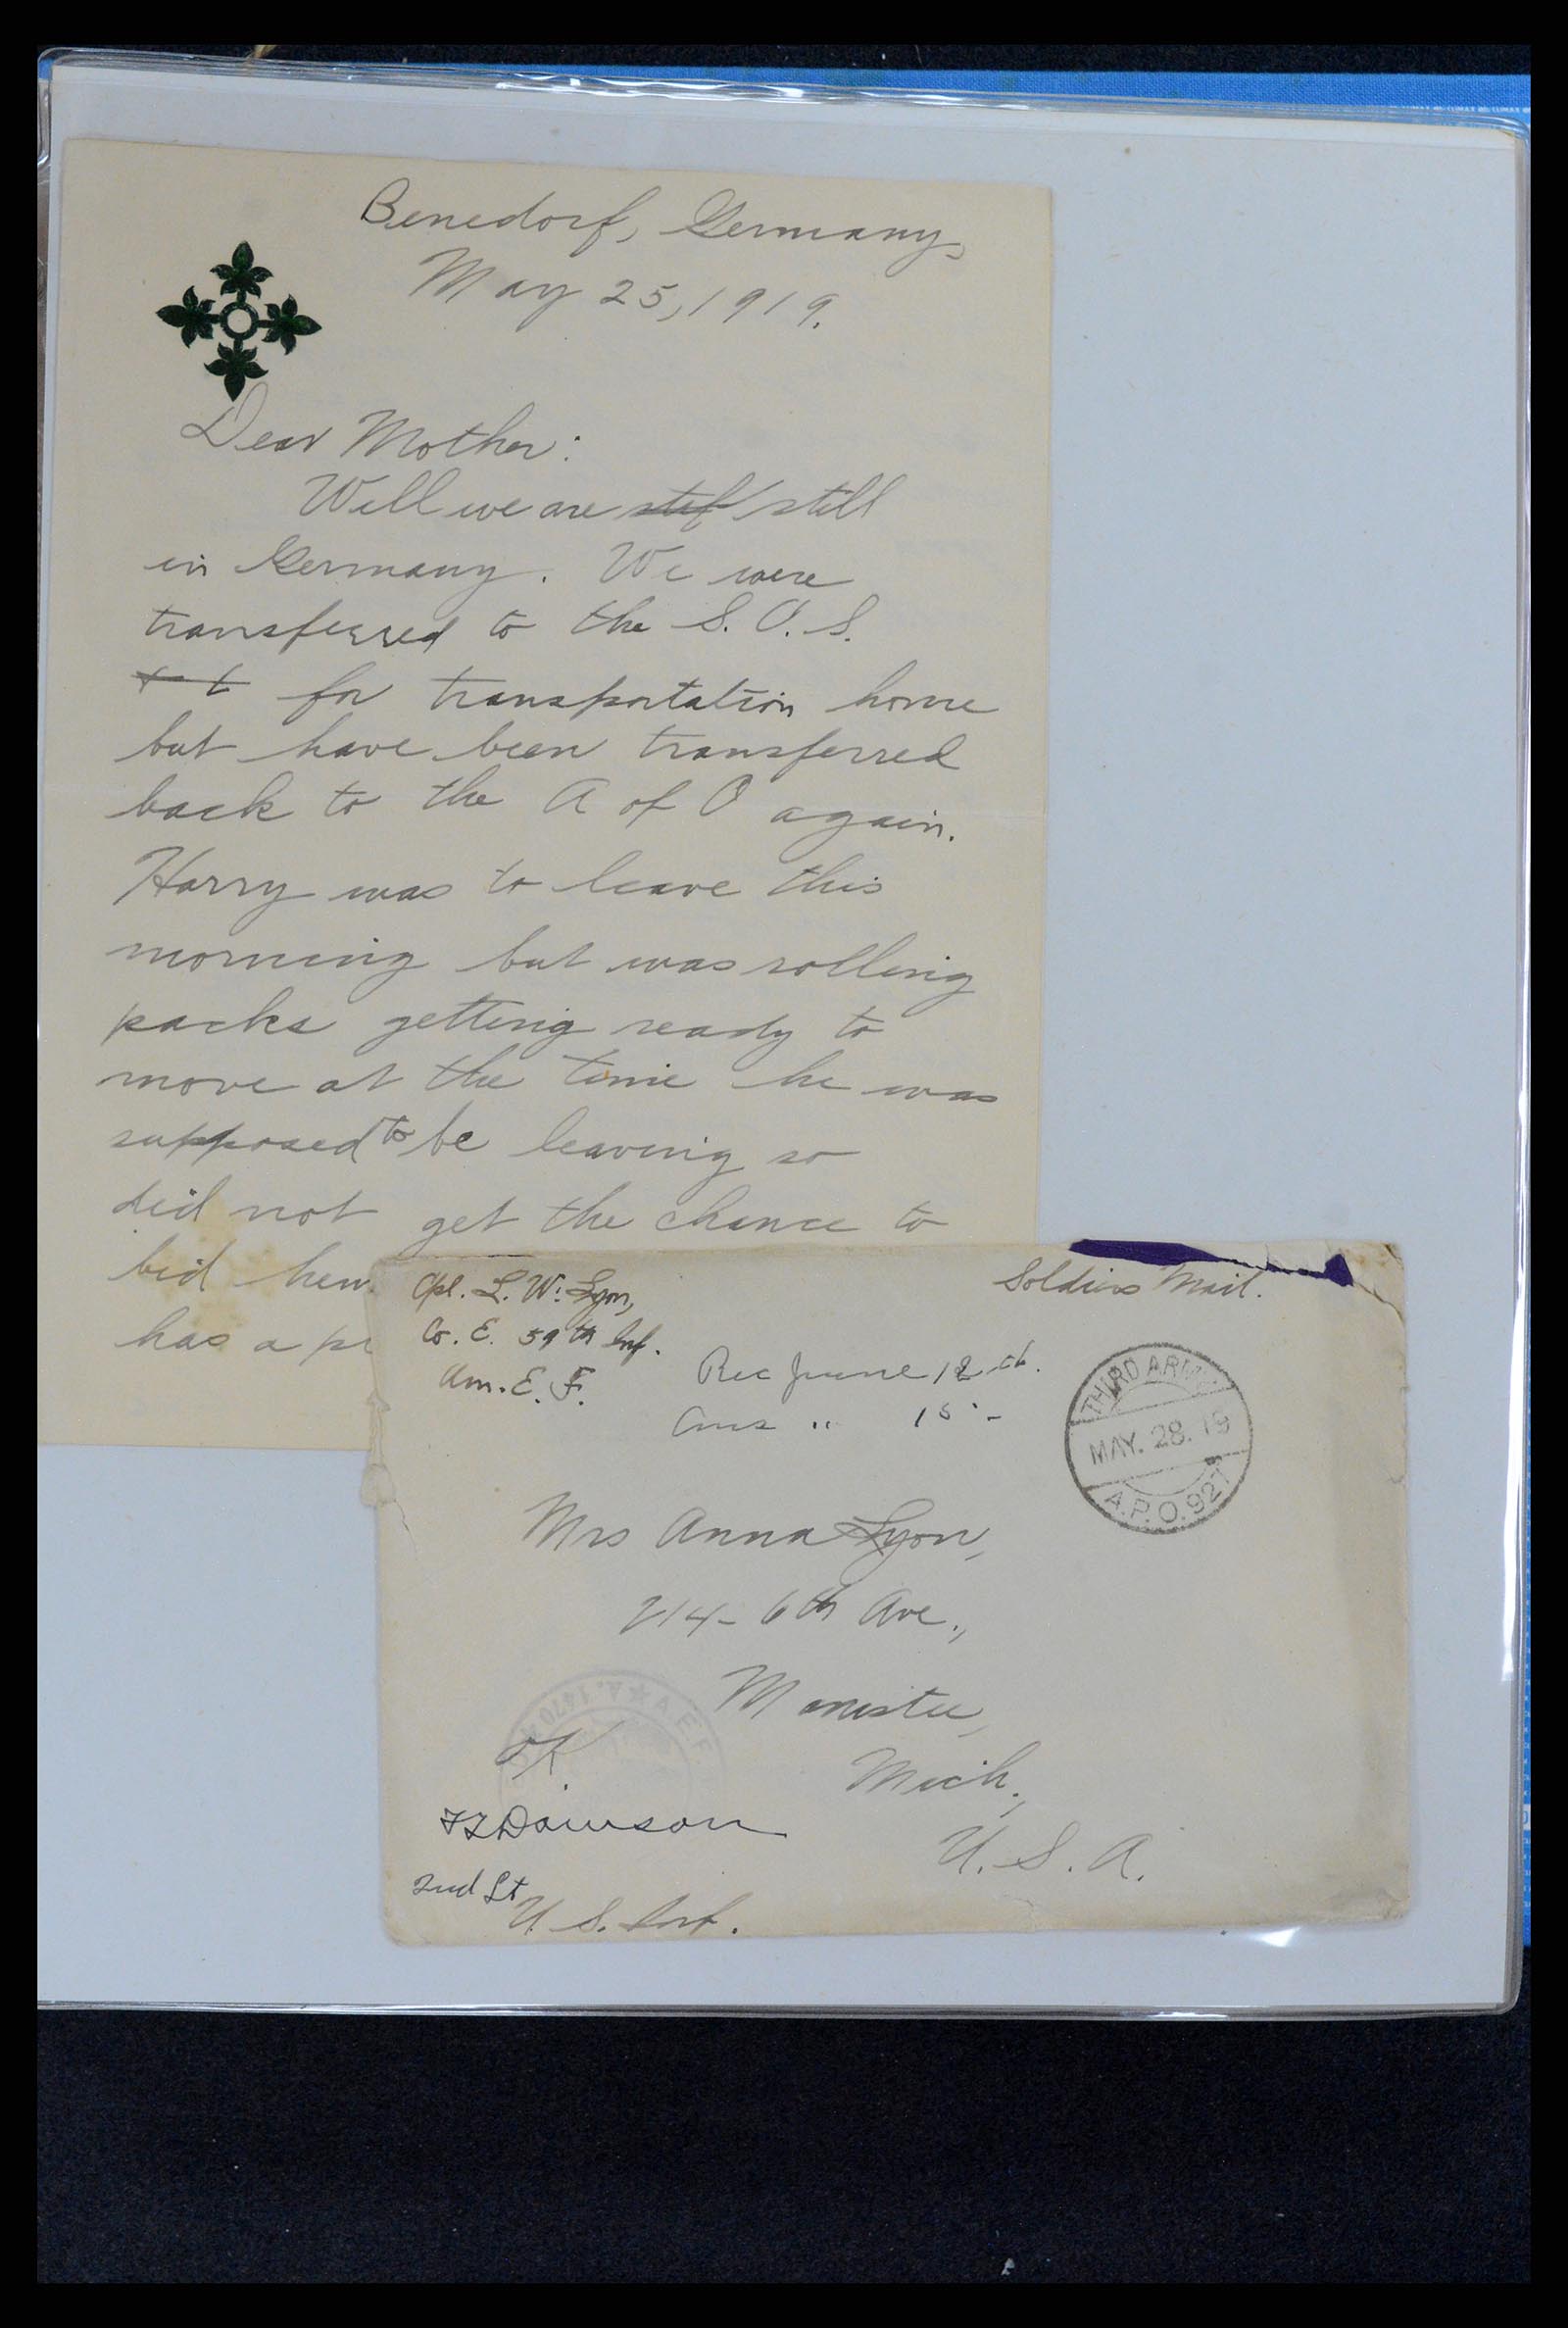 Benedorf, Germany,
May 25, 1919.
Dear Mother:
Well we are still
in Germany. We were
transferred to the S. O. S.
for transportation home
but have been transferred
back to the A of O again.
Harry was to leave this
morning but was rolling
packs getting ready to
move at the time he was
supposed to be leaving so
did not get the chance to
bid
has a
Cpl. L. W. Lyon,
Co. E. 59th Inf.
Am. E. F.
Soldiers Mail.
Rec June 12th.
Ans " 15 -
THIRD ARMY
MAY. 28. 19
A.P.O. 927
Mrs Anna Lyon,
214 - 6th Ave.,
Manistee,
Mich.,
U. S. A.
A.E.F.
OK
Dawson
2nd Lt
U. S. Inf.